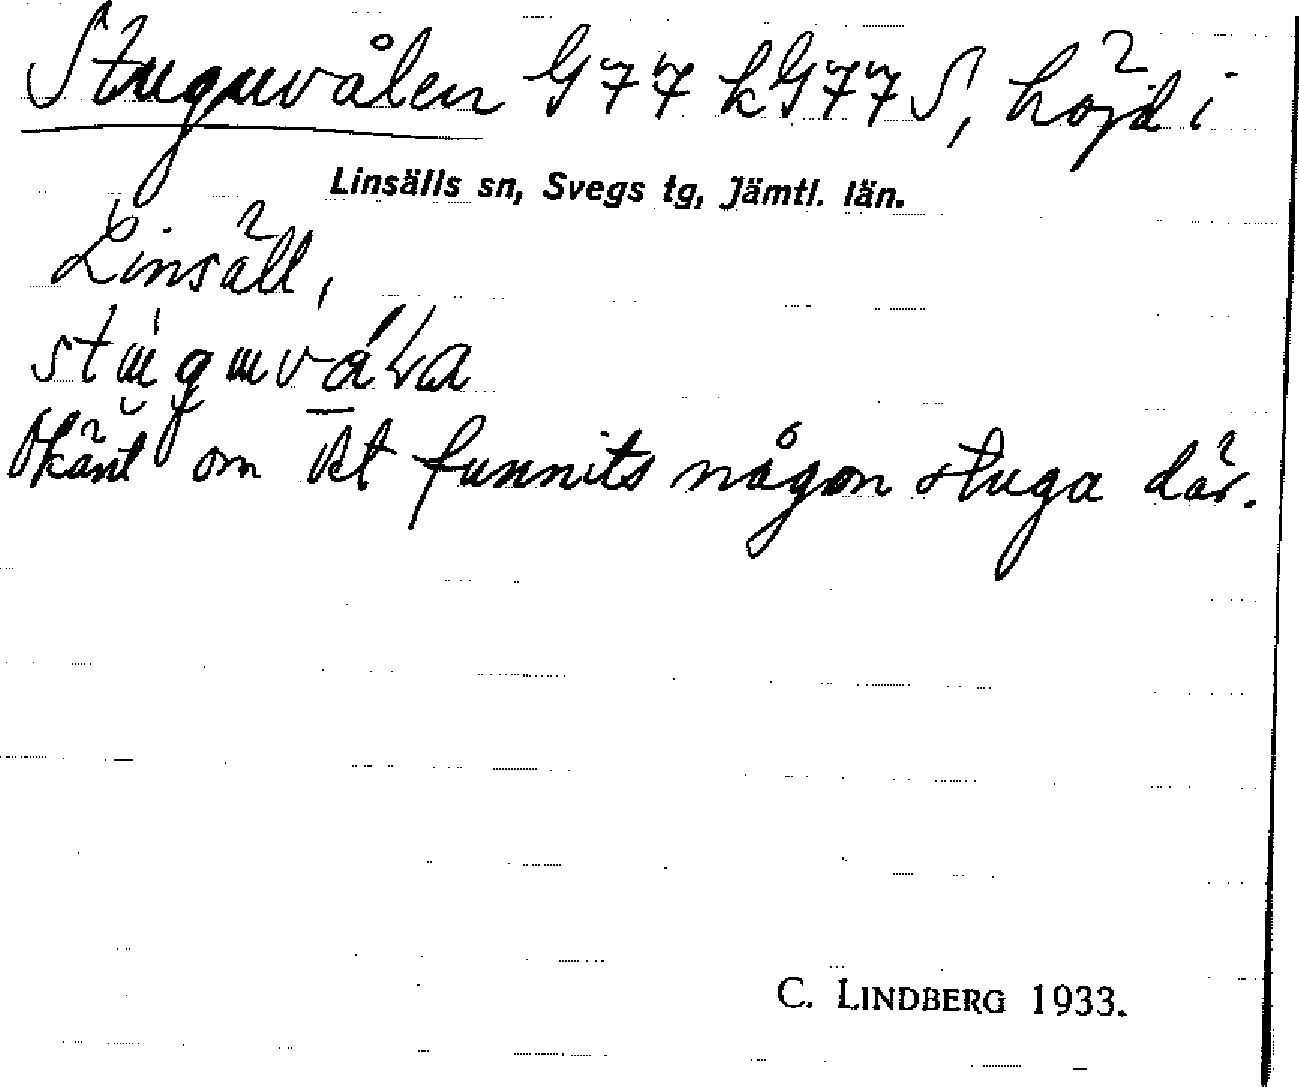 Stuguvålen G77 kG77S, höjd i
Linsälls sn, Svegs tg, Jämtl. län.
Linsäll,
Okänt om det funnits någon stuga där.
C. LINDBERG 1933.